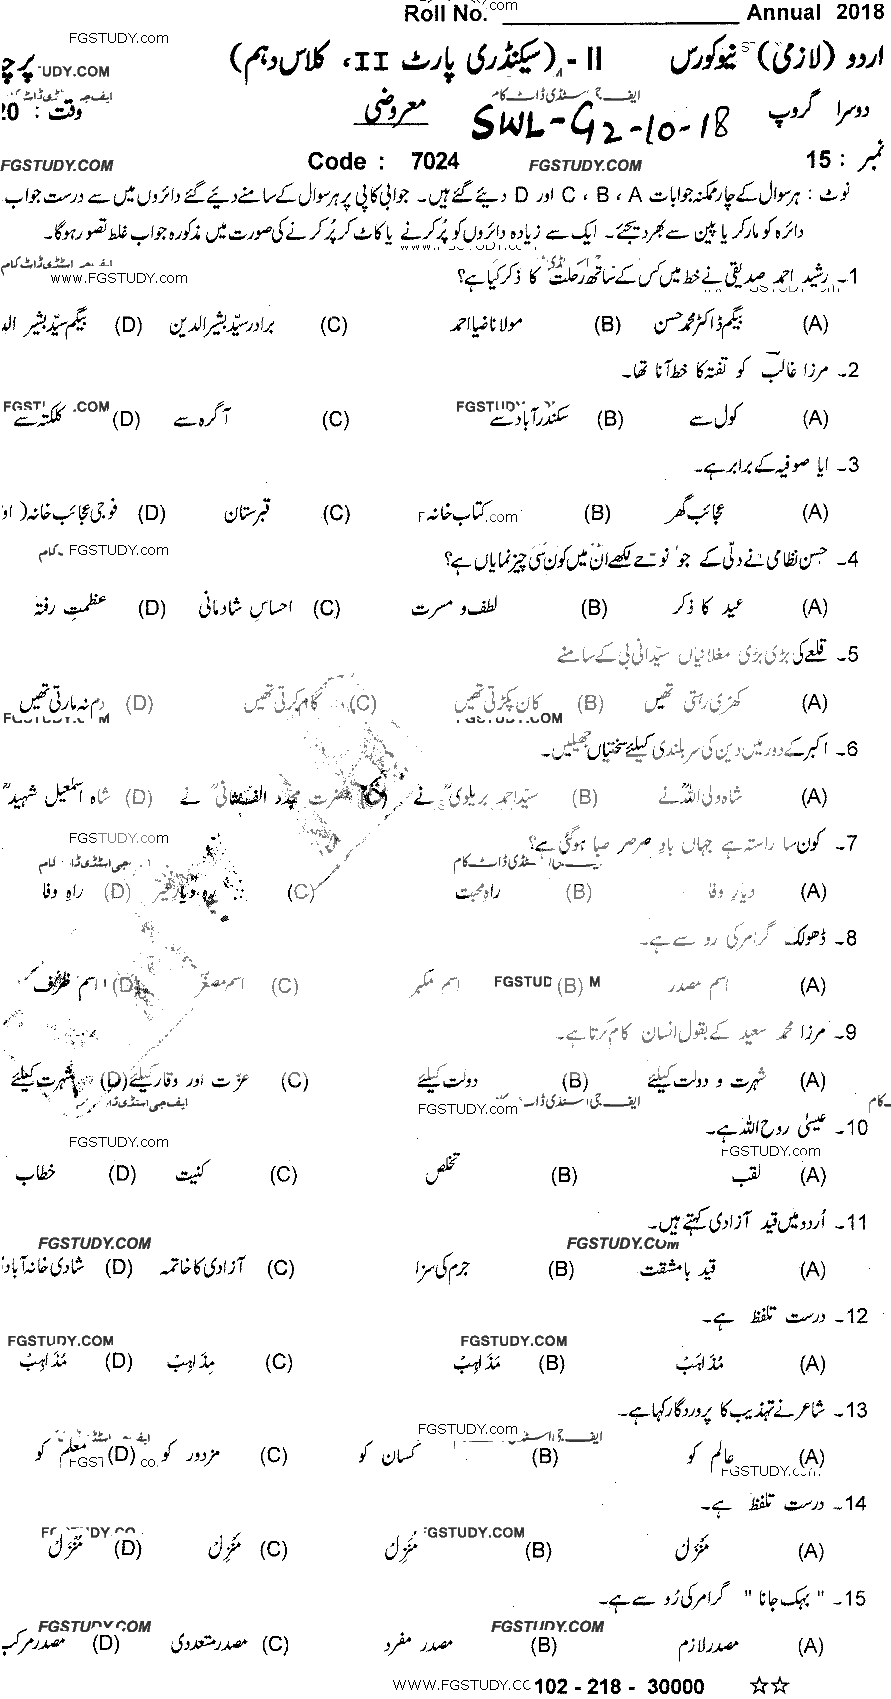 Roll No. ____________ Annual 2018
FGSTUDY.com
اردو (لازمی) نیوکورس II - (سیکنڈری پارٹ II، کلاس دہم) پرچ
UDY.COM
دوسرا گروپ SWL-G2-10-18 معروضی وقت : 20
نمبر : 15 FGSTUDY.COM Code : 7024 FGSTUDY.COM
نوٹ : ہر سوال کے چار ممکنہ جوابات A ، B ، C اور D دیئے گئے ہیں۔ جوابی کاپی پر ہر سوال کے سامنے دیئے گئے دائروں میں سے درست جواب
دائرہ کو مارکر یا پین سے بھر دیجئے۔ ایک سے زیادہ دائروں کو پُر کرنے یا کاٹ کر پُر کرنے کی صورت میں مذکورہ جواب غلط تصور ہوگا۔
1۔ رشید احمد صدیقی نے خط میں کس کے ساتھ رحلت کا ذکر کیا ہے؟
www.FGSTUDY.COM
(A) بیگم ڈاکٹر محمد حسن (B) مولانا ضیا احمد (C) برادر سیّد بشیر الدین (D) بیگم سیّد بشیر الد
2۔ مرزا غالب کو تفتہ کا خط آنا تھا۔
(A) کول سے (B) سکندر آباد سے (C) آگرہ سے (D) کلکتہ سے
3۔ ایا صوفیہ کے برابر ہے۔
(A) عجائب گھر (B) کتاب خانہ (C) قبرستان (D) فوجی عجائب خانہ ( او
FGSTUDY.com
4۔ حسن نظامی نے دلّی کے جو نوحے لکھے ان میں کون سی چیز نمایاں ہے؟
(A) عید کا ذکر (B) لطف و مسرت (C) احساسِ شادمانی (D) عظمتِ رفتہ
5۔ قلعے کی بڑی بڑی مغلانیاں سیّدانی بی کے سامنے
(A) کھڑی رہتی تھیں (B) کان پکڑتی تھیں (C) کام کرتی تھیں (D) دم نہ مارتی تھیں
6۔ اکبر کے دور میں دین کی سربلندی کیلئے سختیاں جھیلیں۔
(A) شاہ ولی اللہؒ نے (B) سیّد احمد بریلویؒ نے (C) حضرت مجدد الف ثانیؒ نے (D) شاہ اسمٰعیل شہیدؒ
FGSTUDY.com
7۔ کون سا راستہ ہے جہاں بادِ صرصر صبا ہوگئی ہے؟
(A) دیارِ وفا (B) راہ محبت (C) رہ دیارِ غیر (D) راہِ وفا
8۔ ڈھولک گرامر کی رو سے ہے۔
(A) اسم مصدر (B) اسم مکبر (C) اسم مصغّر (D) اسم ظرف
9۔ مرزا محمد سعید کے بقول انسان کام کرتا ہے۔
(A) شہرت و دولت کیلئے (B) دولت کیلئے (C) عزت اور وقار کیلئے (D) شہرت کیلئے
FGSTUDY.com
10۔ عیسٰی روح اللہ ہے۔
FGSTUDY.com FGSTUDY.com
(A) لقب (B) تخلص (C) کنیت (D) خطاب
11۔ اُردو میں قید آزادی کہتے ہیں۔
FGSTUDY.COM FGSTUDY.COM
(A) قید بامشقت (B) جرم کی سزا (C) آزادی کا خاتمہ (D) شادی خانہ آباد
12۔ درست تلفظ ہے۔
FGSTUDY.COM FGSTUDY.COM
(A) مُذاہَب (B) مَذَاہِبْ (C) مِذَاہِبْ (D) مُذَاہِبْ
13۔ شاعر نے تہذیب کا پروردگار کہا ہے۔
FGSTUDY.com
(A) عالم کو (B) کسان کو (C) مزدور کو (D) معلم کو
14۔ درست تلفظ ہے۔
FGSTUDY.COM
(A) منزل (B) منزل (C) منزل (D) منزل
15۔ " بہک جانا " گرامر کی رُو سے ہے۔
FGSTUDY.COM FGSTUDY.COM
(A) مصدر لازم (B) مصدر مفرد (C) مصدر متعدی (D) مصدر مرکب
WWW.FGSTUDY.CC 102 - 218 - 30000 ☆☆